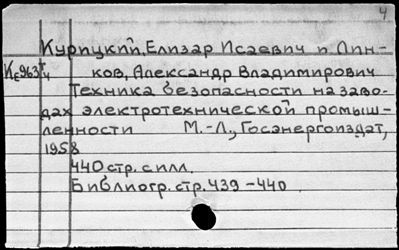 4
Курицкий, Елизар Исаевич и Лин-
ков, Александр Владимирович
Техника безопасности на заво-
дах электротехнической промыш-
ленности М.-Л., Госэнергоиздат,
1958
440 стр. с илл.
Библиогр. стр. 439-440